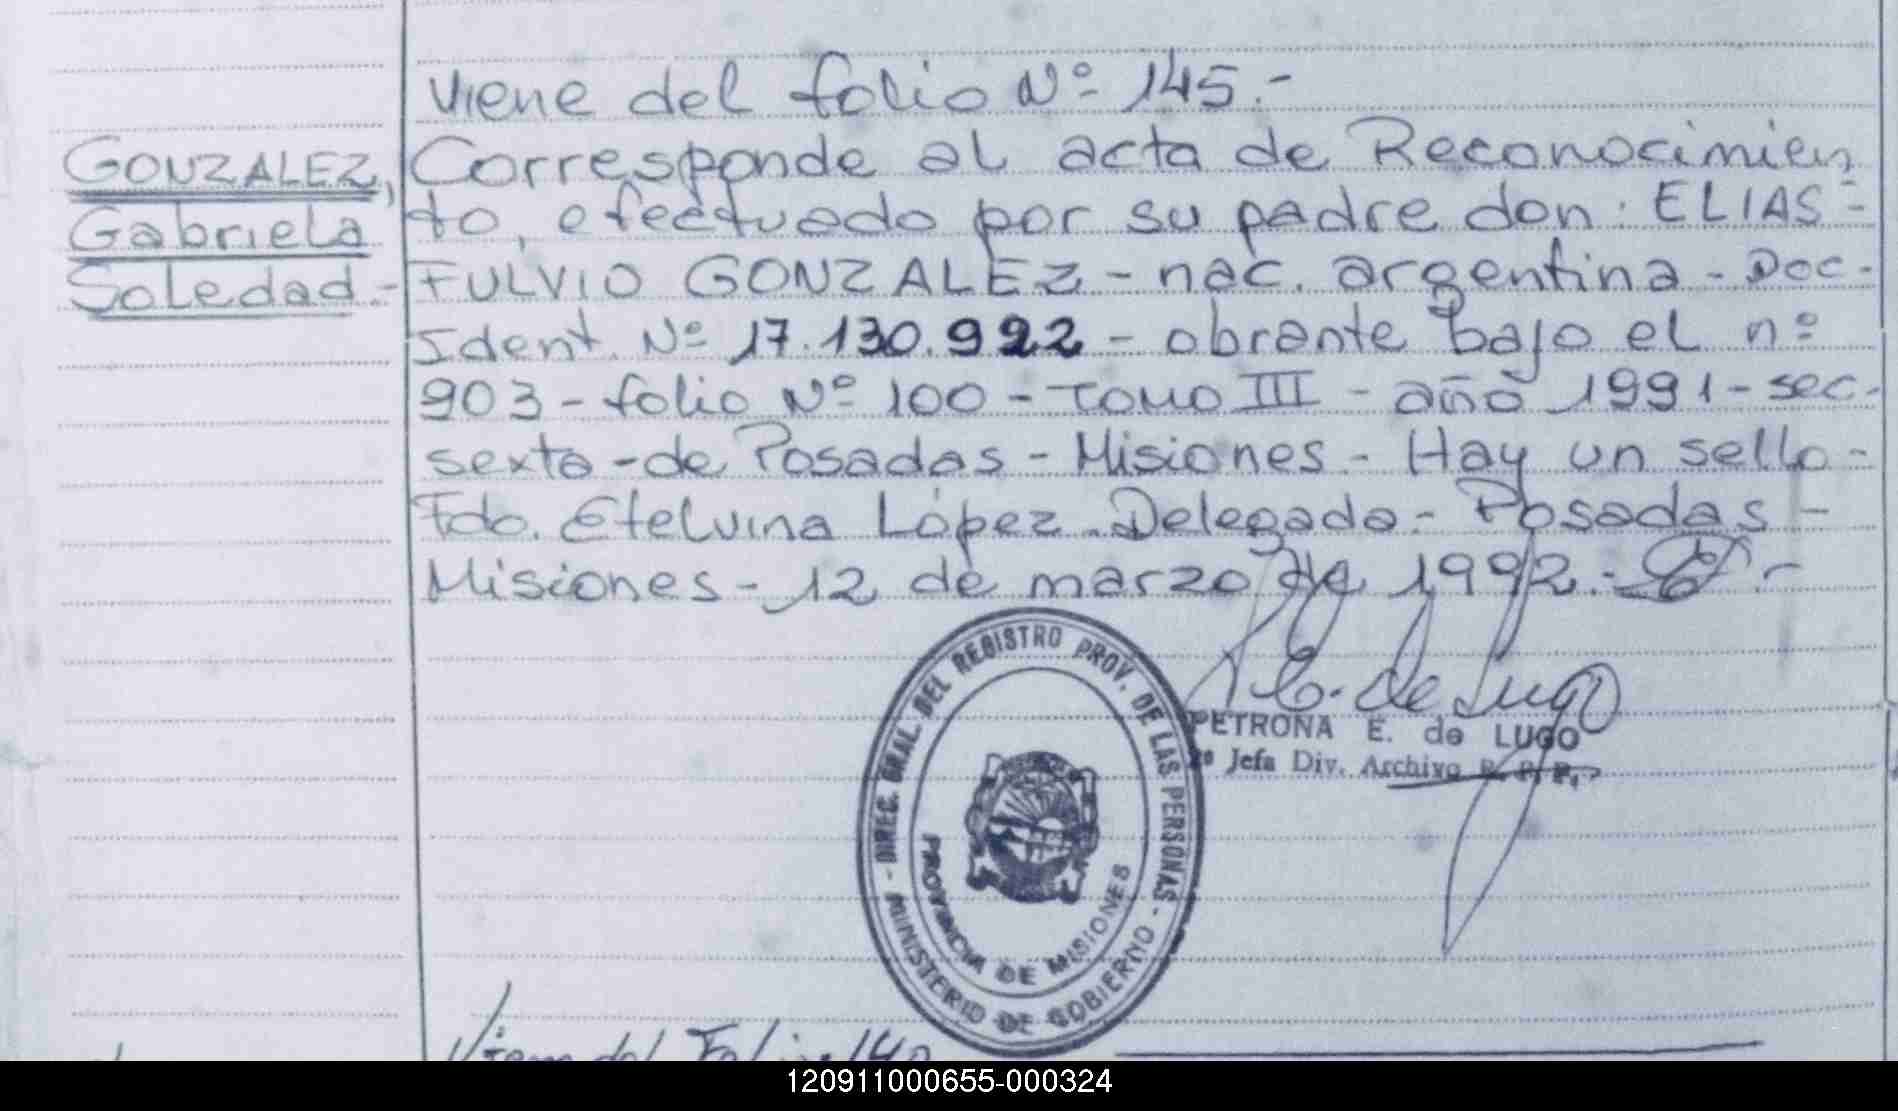 viene del folio Nº 145.-
GONZALEZ,
Gabriela
Soledad.-
Corresponde al acta de Reconocimien
to, efectuado por su padre don: ELIAS-
FULVIO GONZALEZ - nac. argentina - Doc.
Ident. Nº 17.130.922 - obrante bajo el nº
903 - folio Nº 100 - Tomo III - año 1991 - sec.
sexta - de Posadas - Misiones - Hay un sello -
Fdo. Etelvina López. Delegada - Posadas -
Misiones - 12 de marzo de 1992.-
E. de Lugo
PETRONA E. de LUGO
Jefa Div. Archivo R. P. P.
- DIREC. GRAL. DEL REGISTRO PROV. DE LAS PERSONAS -
MINISTERIO DE GOBIERNO
PROVINCIA DE MISIONES
Viene del Folio
120911000655-000324